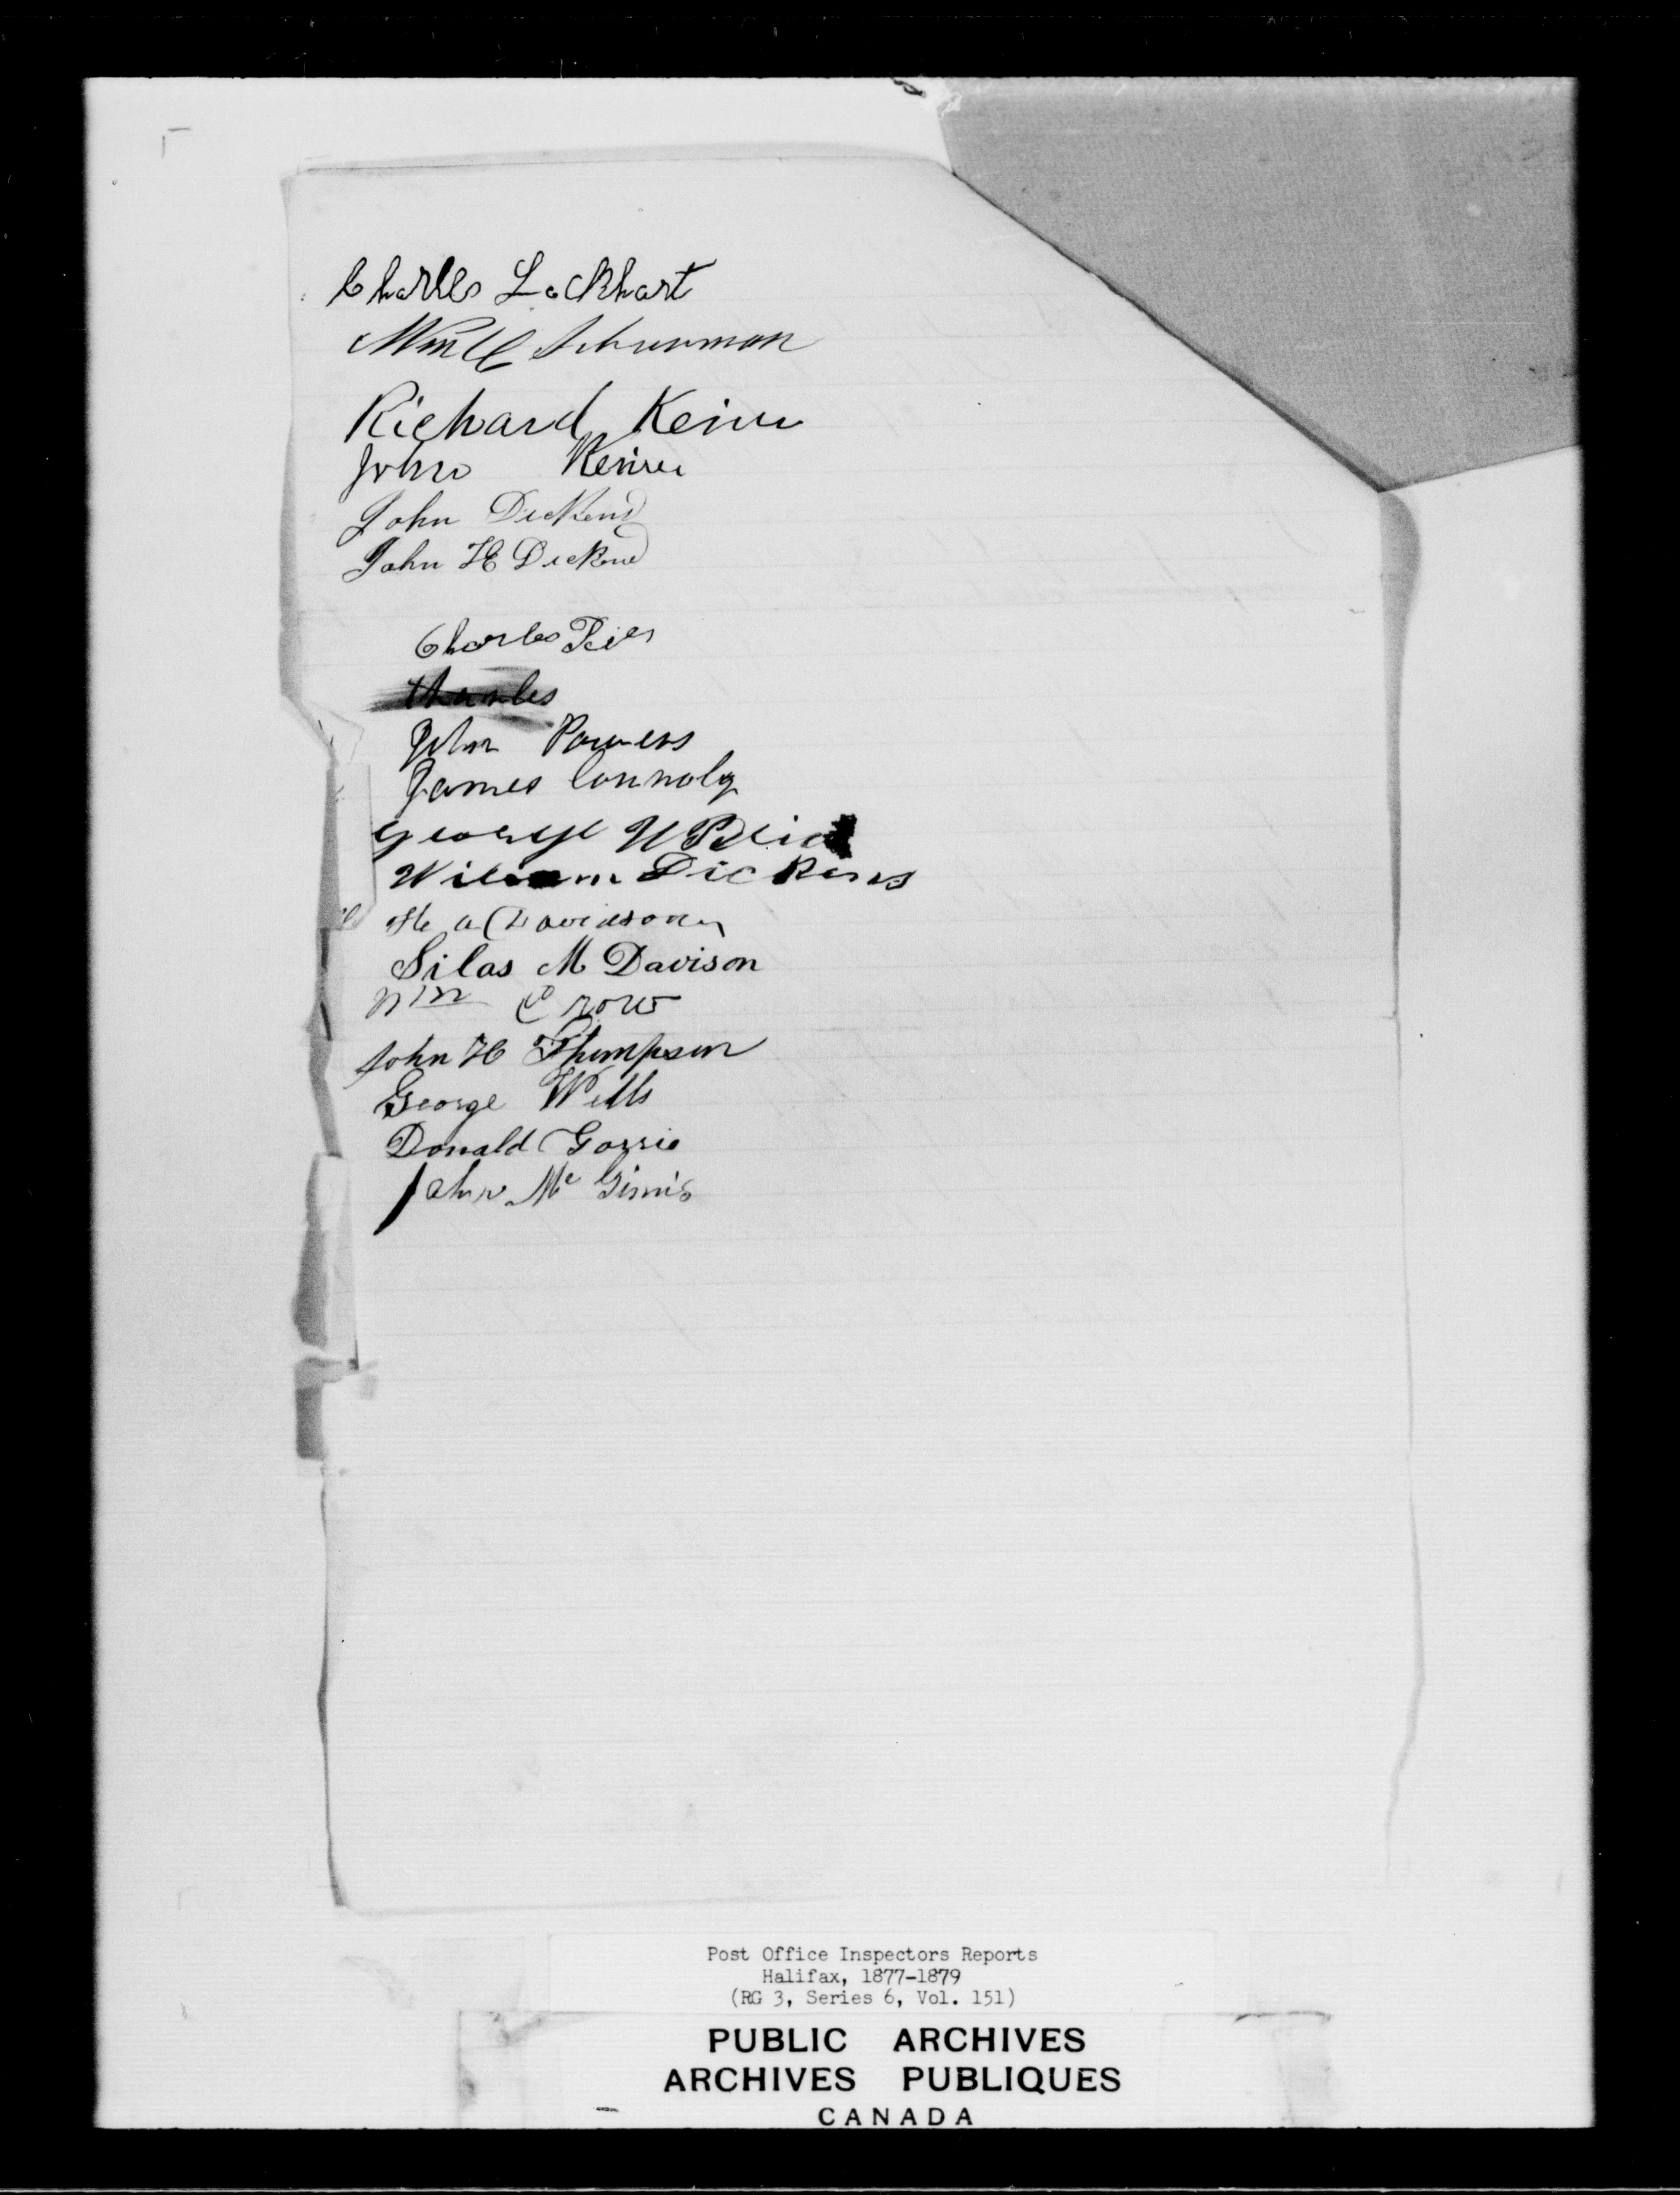 Charles Lockhart
Schurman
Richard Keiver
John Keiver
John Dickens
John H Dickens
Charles
Charles
John Powers
James Connoly
George W
William Dickens
H a Davidson
Silas M Davison
Wm Crow
John H Thompson
George Wells
Donald Gossie
John Mc Ginnis
Post Office Inspectors Reports
Halifax, 1877-1879
(RG 3, Series 6, Vol. 151)
PUBLIC ARCHIVES
ARCHIVES PUBLIQUES
CANADA